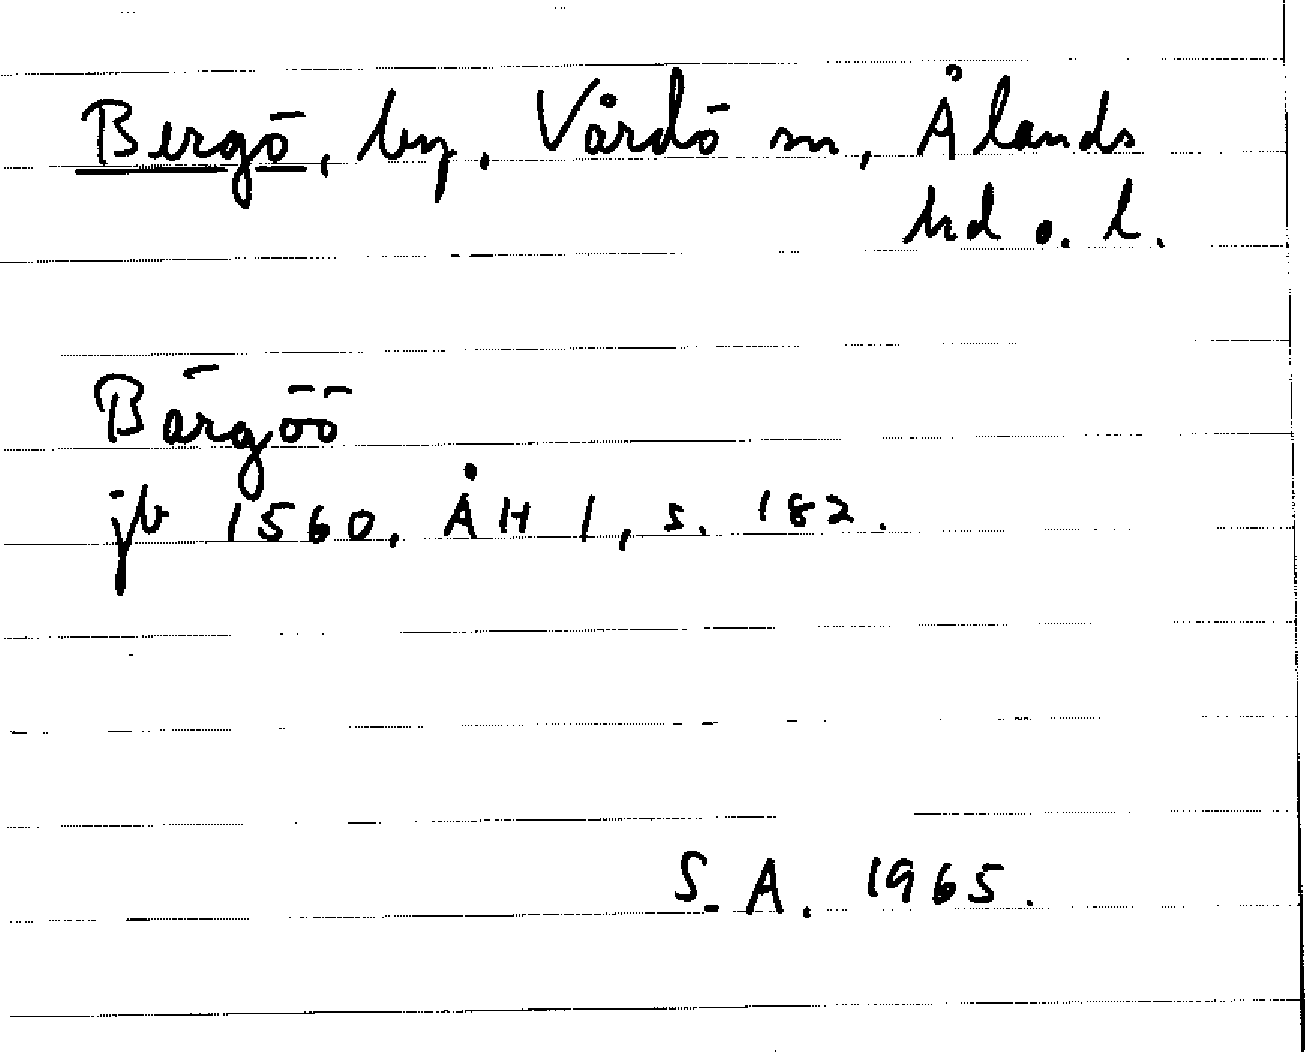 Bergö, by, Vårdö sn, Ålands
hd o. l.
Bärgöö
jb 1560. ÅH 1, s. 182.
S. A. 1965.